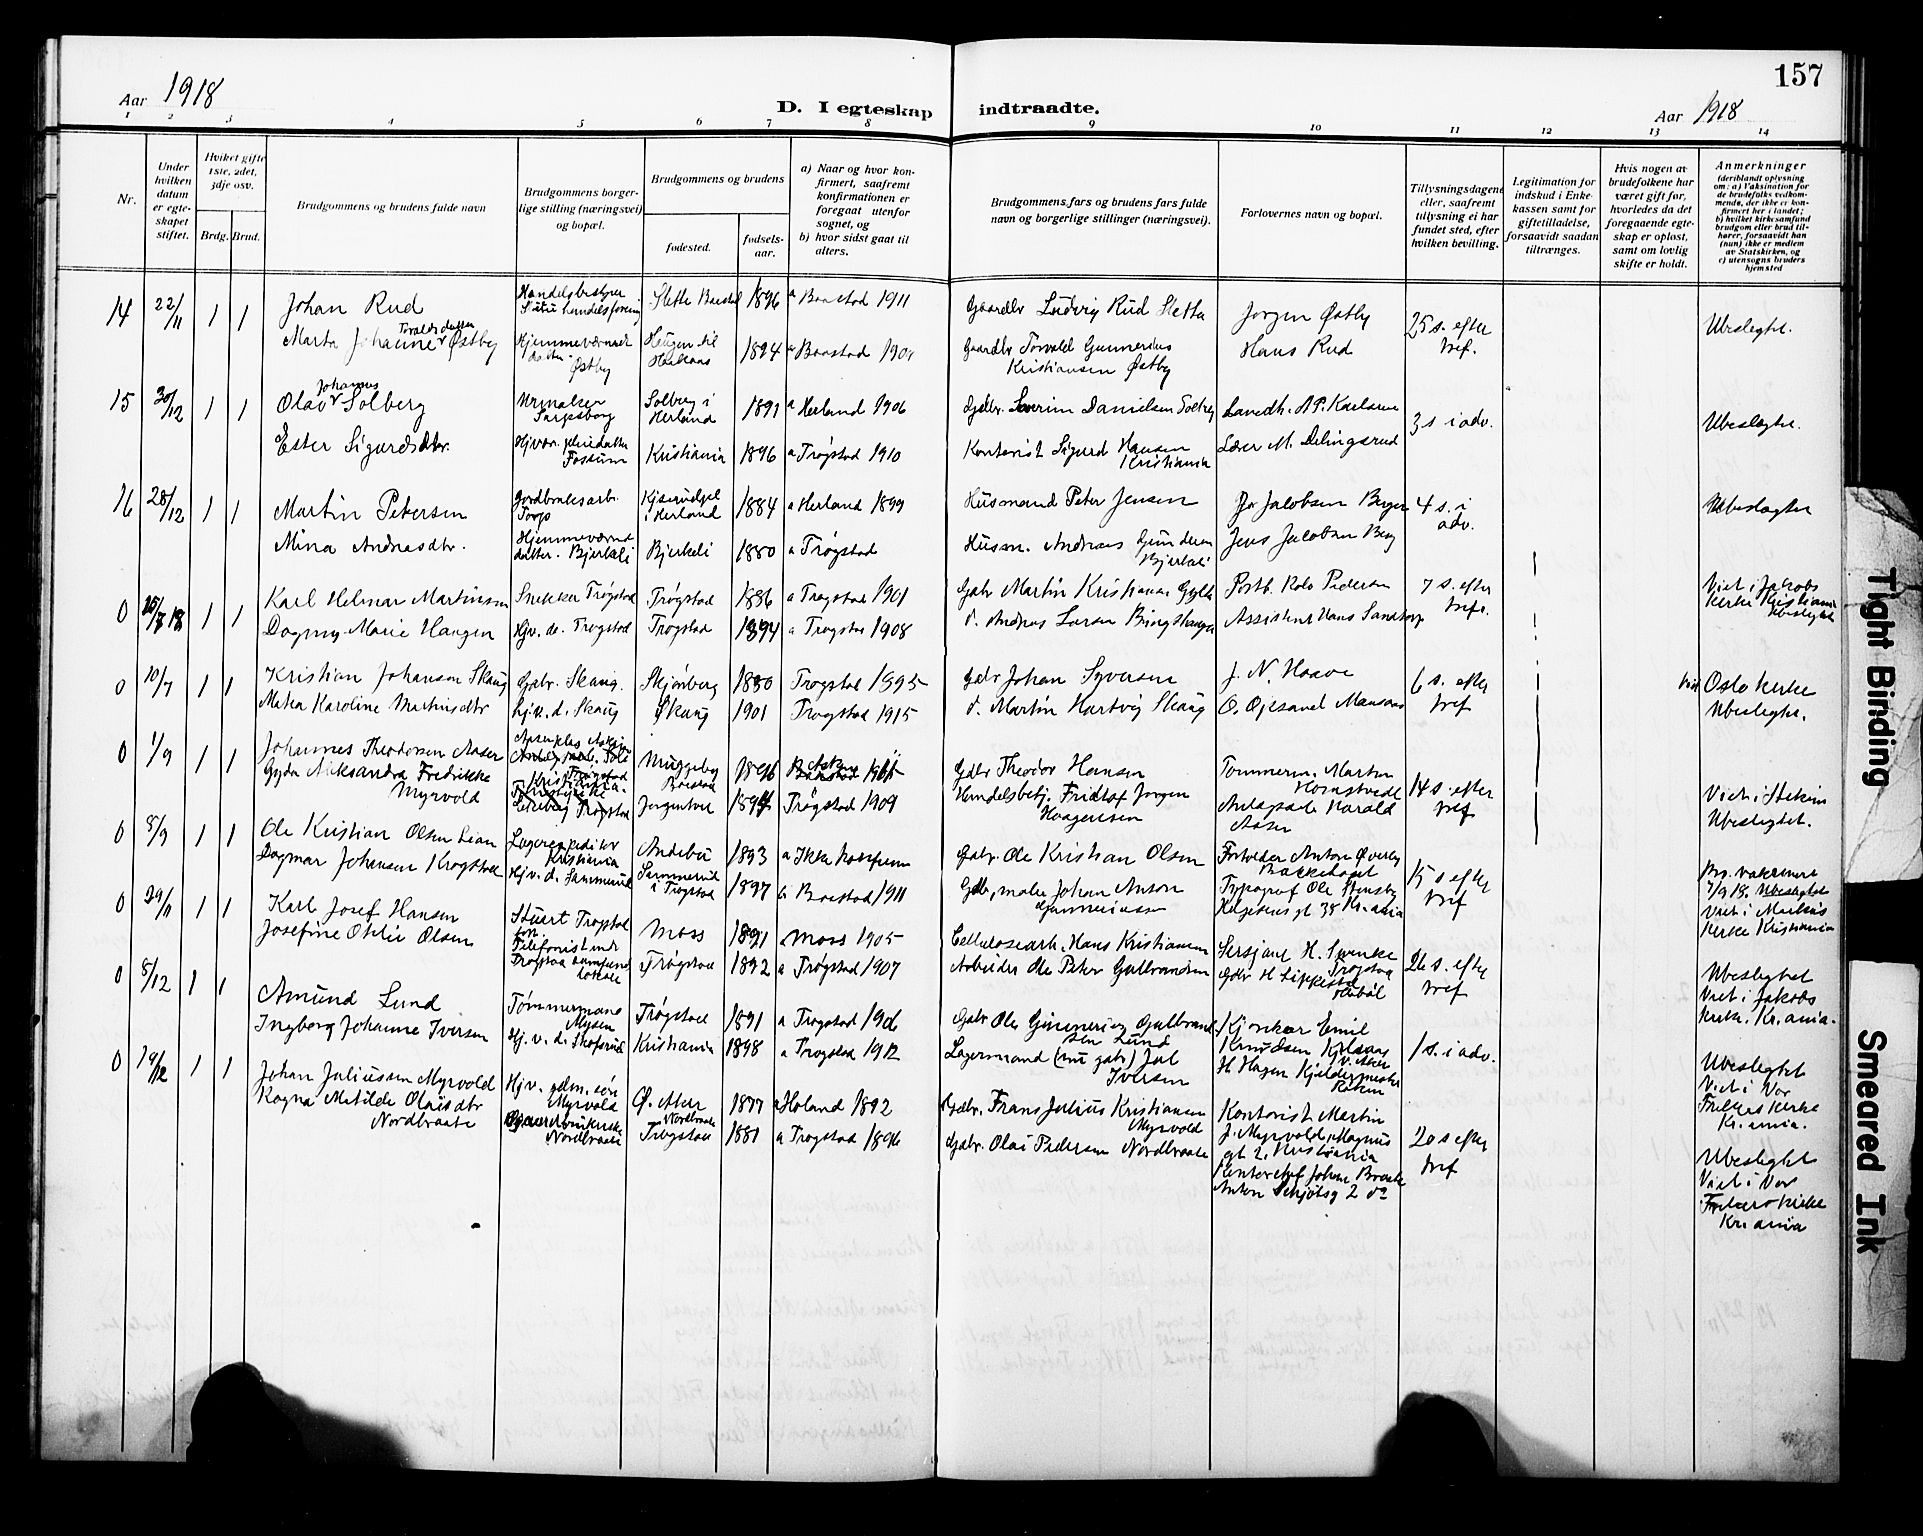 157
Aar 1918
D. I egteskap indtraadte.
Aar 1918
1 2 3 4 5 6 7 8 9 10 11 12 13 14
Nr.
Under hvilken datum er egteskapet stiftet.
Hvilket gifte 1ste, 2det, 3dje osv.
Brdg. Brud.
Brudgommens og brudens fulde navn
Brudgommens borgerlige stilling (næringsvei) og bopæl.
Brudgommens og brudens
fødested.
fødselsaar.
a) Naar og hvor konfirmert, saafremt konfirmationen er foregaat utenfor sognet, og
b) hvor sidst gaat til alters.
Brudgommens fars og brudens fars fulde navn og borgerlige stillinger (næringsvei).
Forlovernes navn og bopæl.
Tillysningsdagene eller, saafremt tillysning ei har fundet sted, efter hvilken bevilling.
Legitimation for indskud i Enkekassen samt for giftetilladelse, forsaavidt saadan tiltrænges.
Hvis nogen av brudefolkene har været gift før, hvorledes da det foregaaende egteskap er opløst, samt om lovlig skifte er holdt.
Anmerkninger (deriblandt oplysning om: a) Vaksination for de brudefolks vedkommende, der ikke er konfirmert her i landet; b) hvilket kirkesamfund brudgom eller brud tilhører, forsaavidt han (hun) ikke er medlem av Statskirken, og c) utensogns bruders hjemsted
14 22/11 1 1 Johan Rud Handelsbestyrer 1896 a Baastad 1911 Gaardbr Ludvig Rud Sletta Jørgen Østby 25 s. efter tref. Ubeslegtet.
Marta Johanne Toraldsdatter Østby Hjemmeværende datter Østby 1894 a Baastad Gaardbr Torvald Gunnerius Kristiansen Østby Hans Rud
15 30/12 1 1 Olav Johannes Solberg Urmaker Sarpsborg Solberg i Herland 1891 a Herland 1906 Gdbr. Severin Danielsen Solberg Landh. A P. Karlsen 3 s i adv. Ubeslegtet.
Ester Sigurdsdtr. Fossum Kristiania 1896 a Trøgstad 1910 Kontorist Sigurd Hansen Kristiania Lærer M. Delingsrud
16 28/12 1 1 Martin Petersen Jordbruksarb. Torp i Herland 1884 a Herland 1899 Husmand Peter Jensen Jo Jacobsen Berger 4 s. i adv. Ubeslegtet
Mina Andreasdtr. Hjemmeværend datter. Bjerkeli Bjerkeli 1880 a Trøgstad Husm. Andreas Gundersen Bjerkeli Jens Jacobsen Berg
0 1 1 Karl Helmer Martinsen Snekker Trøgstad Trøgstad 1886 a Trøgstad 1901 Gdbr Martin Kristiansen Postb. Kolo Pedersen 7 s. efter tref. Viet i Jakobs kirke Kristiania Ubeslegtet
Dagmy Marie Haugen Hjv. d. Trøgstad Trøgstad 1894 a Trøgstad 1908 d. Andreas Larsen Assistent Hans Sandtorp
0 10/7 1 1 Kristian Johansen Skaug Gdbr. Skaug. Skjønberg 1880 Trøgstad 1895 Gdbr Johan Syversen J. N. Haave 6 s. efter tref Viet Oslo kirke
Matea Karoline Martinsdtr Hjv. d. Skaug Skaug 1901 Trøgstad 1915 d. Martin Hartvig Skaug Ubeslegtet.
0 1/9 1 1 Johannes Theodorsen Aaser Muggeby Baastad 1896 Gdbr Theodor Hansen Tømmerm. Martin 14 s. efter tref Viet i Askim
Gyda Aleksandra Fredrikke Myrvold Trøgstad 1894 Trøgstad 1909 Handelsbetj. Fridtjof Jørgen Haagensen Harald Aaser Ubeslegtet.
0 8/9 1 1 Ole Kristian Olsen Lian Lagerexpeditør Kristiania Andebu 1893 a Ikke konfirm Gdbr. Ole Kristian Olsen Forvalter Anton Øverby 15 s efter tref
Dagmar Johansen Krogstad Hjv. d. Sammerud Sammerud i Trøgstad 1897 a Baastad 1911 Gdbr, maler Johan Anton Gunneriussen Typograf Ole Stensby Helgesens gt 38 Kr.ania 7/9 18. Ubeslegtet Viet i Markus kirke Kristiania
0 29/11 1 1 Karl Josef Hansen Stuert Trøgstad Moss 1891 a Moss 1905 Cellulosearb. Hans Kristiansen Sersjant H. Svenke Trøgstad 26 s. efter tref Ubeslegtet
Josefine Otilie Olsen Telefonist Trøgstad 1892 a Trøgstad 1907 Arbeider Ole Peter Gulbrandsen Gdbr H Lippestad Hobøl Viet i Jakobs kirke. Kr.ania.
0 8/12 1 1 Amund Lund Tømmermand Mysen Trøgstad 1891 a Trøgstad 1906 Gdbr Ole Gunnerius Gulbrandsen Lund Emil Knudsen 1 s. i adv. Ubeslegtet
Ingborg Johanne Iversen Hj. v. d. Skofsrud Kristiania 1898 a Trøgstad 1912 Lagermand (nu gdbr) Jul Iversen H. Hagen Viet i Vor Frelsers Kirke Kr.ania.
0 19/12 1 1 Johan Juliussen Myrvold Hjv. gdm. søn Myrvold 1877 a Høland 1892 Gdbr. Frans Julius Kristiansen Myrvold Kontorist Martin J. Myrvold, Magnus gt 2, Kristiania 20 s efter tref Ubeslegtet
Ragna Matilde Olaisdtr Nordbraate Nordbraate Nordbraate Trøgstad 1881 a Trøgstad 1896 Gdbr. Olai Pedersen Nordbraate Kontorchef Johan Braate Anton Schjøtsg 2 do Viet i Vor Frelsers kirke Kr.ania
Tight Binding
Smeared Ink